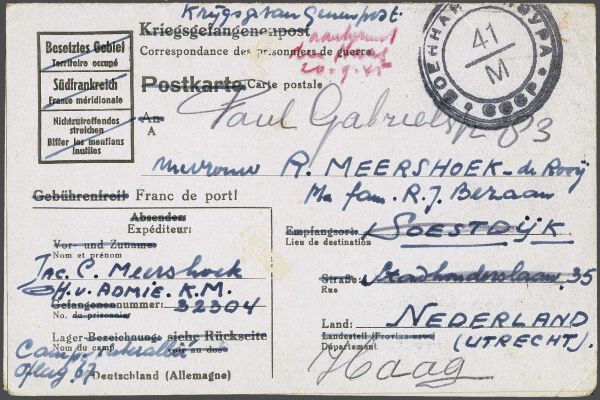 Krijgsgevangenenpost.
Kriegsgefangenenpost
Correspondance des prisonniers de guerre
den Haag
20-9-45
ВОЕННАЯ ЦЕНЗУРА
41
М
СССР
Besetztes Gebiet
Territoire occupé
Südfrankreich
France méridionale
Nichtzutreffendes
streichen
Biffer les mentions
inutiles
Postkarte Carte postale
An
A
Paul Gabrielstr 83
Mevrouw R. MEERSHOEK-de Rooij
p/a fam. R.J. Bezaan
Gebührenfrei! Franc de port!
Absender:
Expéditeur:
Vor- und Zuname:
Nom et prénom
Jac. C. Meershoek
O.H.v. ADMIE. K.M.
Gefangenennummer: 32304
No. du prisonnier
Lager-Bezeichnung: siehe Rückseite
Nom du camp: voir au dos
Camp.
Oflag. 67
Deutschland (Allemagne)
Empfangsort: SOESTDIJK
Lieu de destination
Straße: Stadhouderslaan 35
Rue
Land: NEDERLAND
Landesteil (Provinz usw.)
Département
(UTRECHT).
Haag